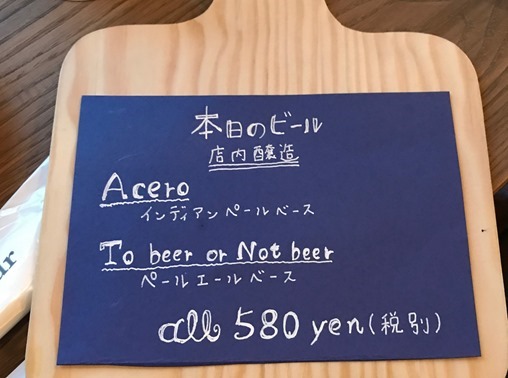 本日のビール
店内醸造
Acero
インディアンペールベース
To beer or Not beer
ペールエールベース
all 580 yen(税別)